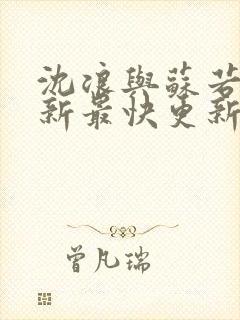 沈浪與蘇若
新最快更新
曾凡瑞